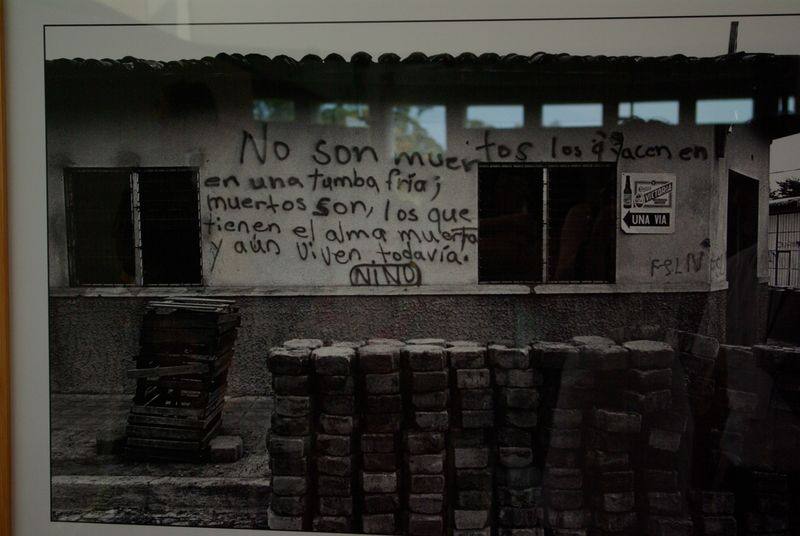 No son muertos los q' yacen en
en una tumba fría;
muertos son, los que
tienen el alma muerta
y aún viven todavía.
NINO
VICTORIA
UNA VIA
FSLN